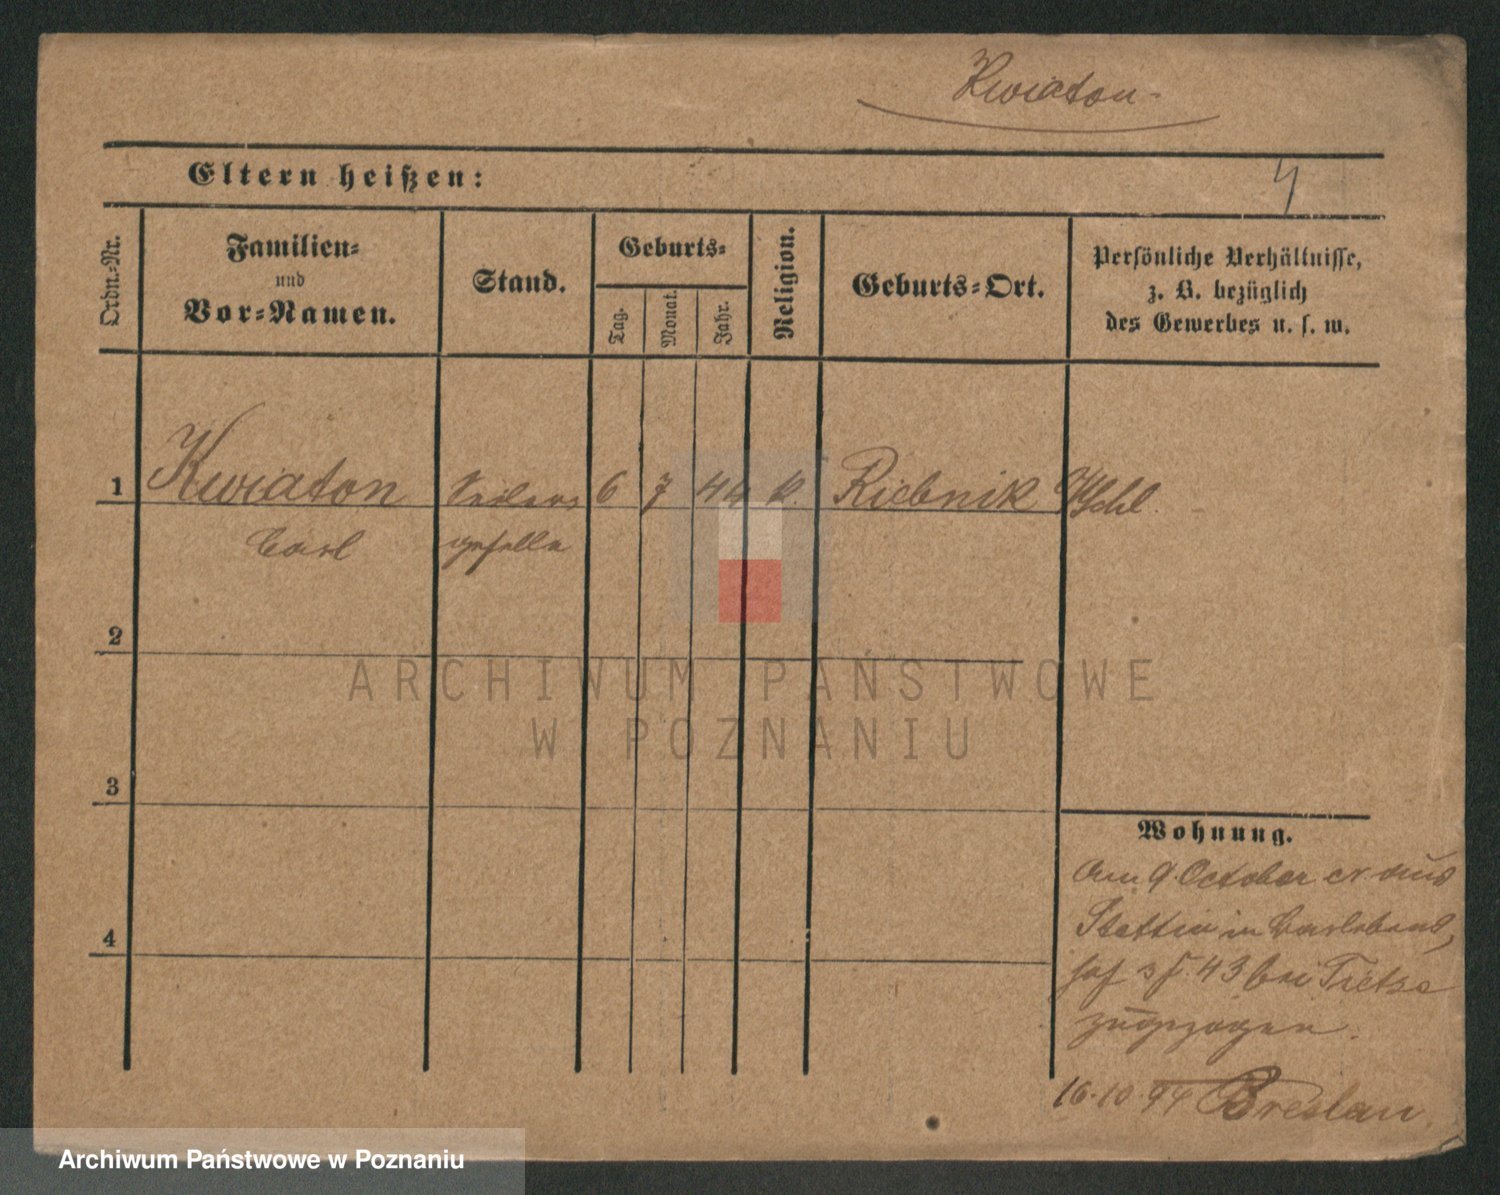 Kwiaton
Eltern heißen:
Ordn.-Nr.
Familien-
und
Vor-Namen.
Stand.
Geburts-
Tag.
Monat.
Jahr.
Religion.
Geburts-Ort.
Persönliche Verhältnisse,
z. B. bezüglich
des Gewerbes u. s. w.
1
Kwiaton
Seilers
6 7 44 k. Riebnik
Carl
geselle
2
3
4
Wohnung.
Am 9. October cr aus
Stettin in
43 bei Tietze
zugezogen.
16.10.94 Breslau.
ARCHIWUM PAŃSTWOWE
W POZNANIU
Archiwum Państwowe w Poznaniu